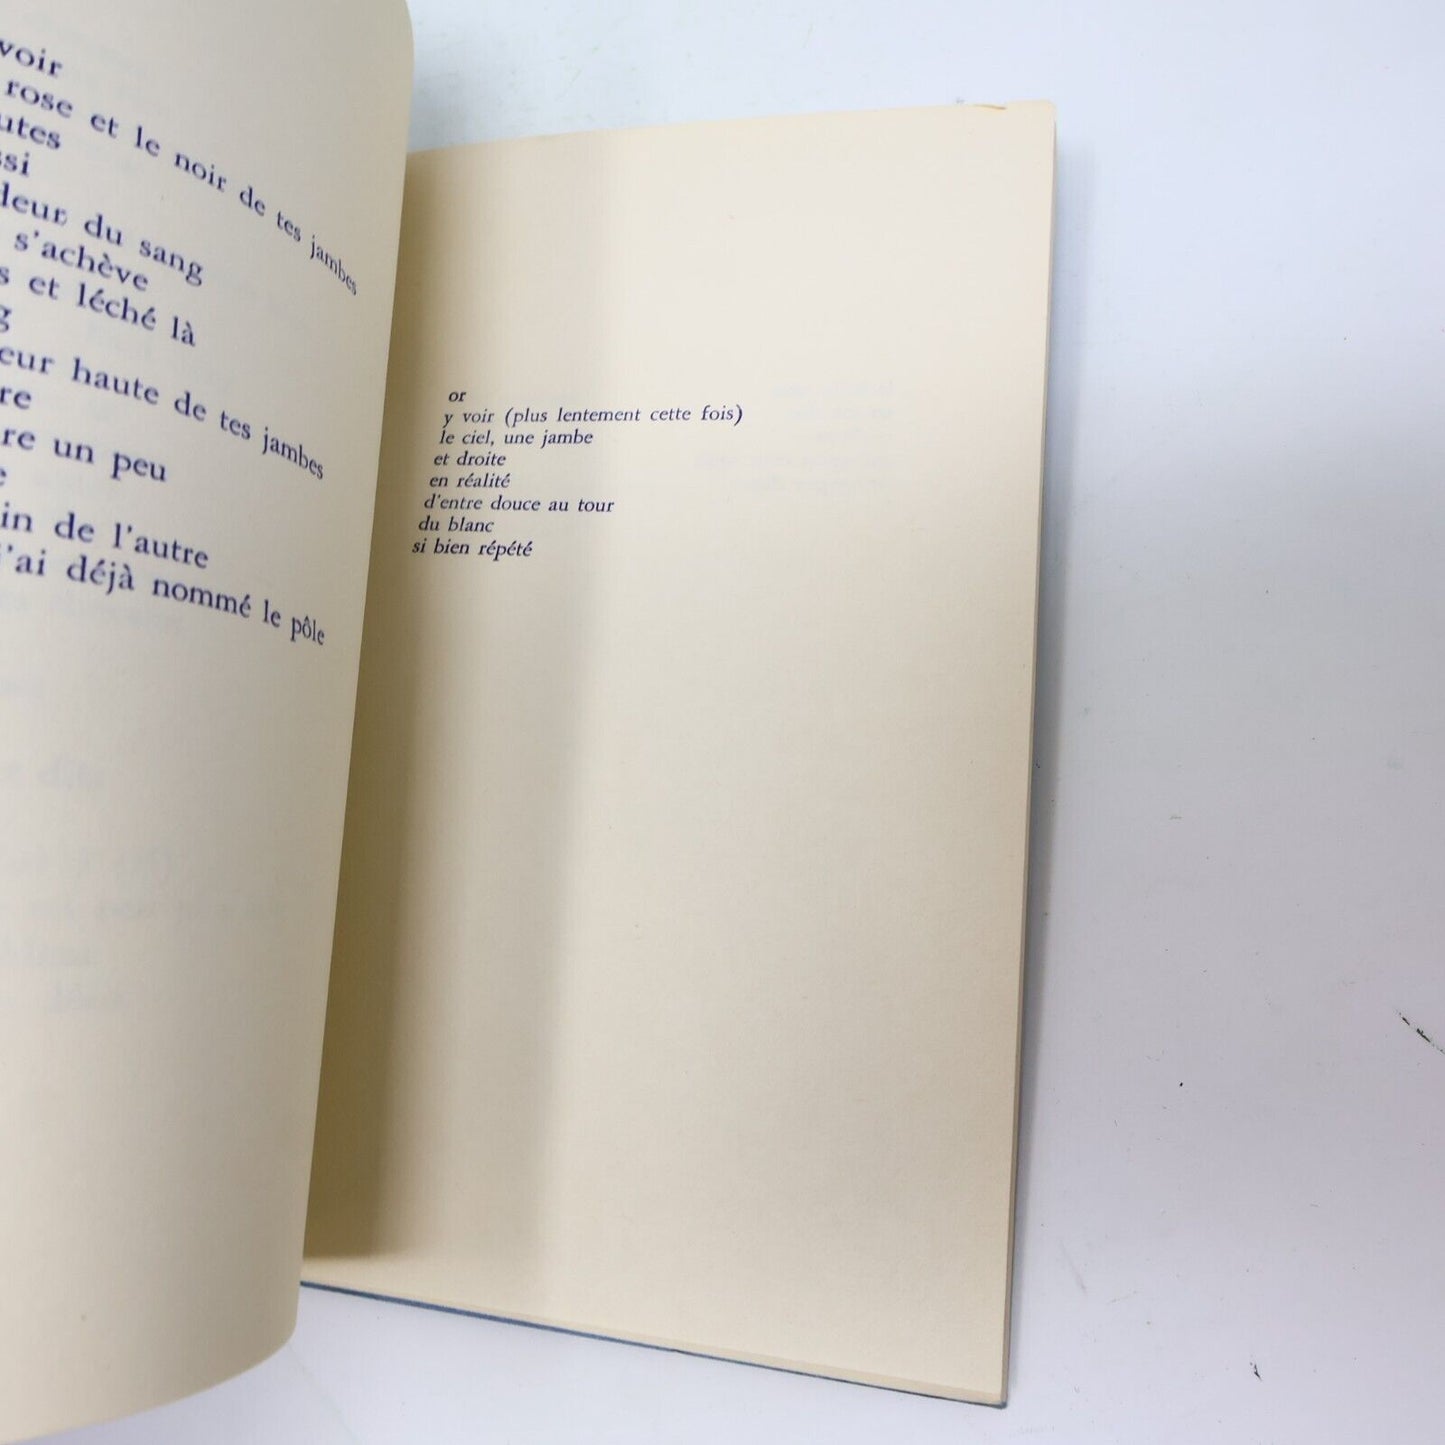 voir
rose et le noir de tes jambes
du sang
s'achève
et léché là
haute de tes jambes
un peu
de l'autre
j'ai déjà nommé le pôle
or
y voir (plus lentement cette fois)
le ciel, une jambe
et droite
en réalité
d'entre douce au tour
du blanc
si bien répété